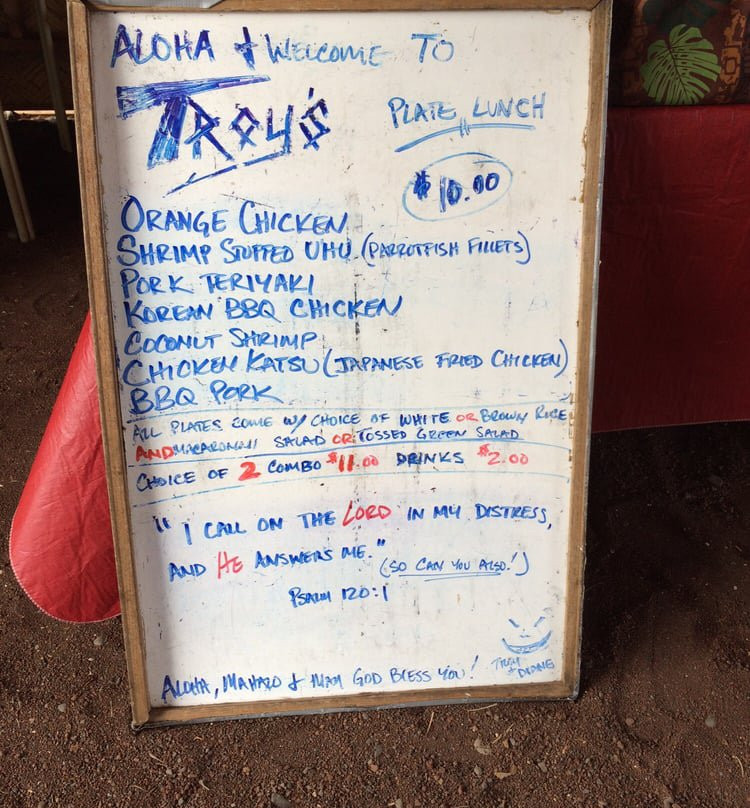 ALOHA + WELCOME TO
TROY'S
PLATE LUNCH
$10.00
ORANGE CHICKEN
SHRIMP STUFFED UHU (PARROTFISH FILLETS)
PORK TERIYAKI
KOREAN BBQ CHICKEN
COCONUT SHRIMP
CHICKEN KATSU (JAPANESE FRIED CHICKEN)
BBQ PORK
ALL PLATES COME W/ CHOICE OF WHITE OR BROWN RICE
AND MACARONNI SALAD OR TOSSED GREEN SALAD
CHOICE OF 2 COMBO $11.00 DRINKS $2.00
"I CALL ON THE LORD IN MY DISTRESS,
AND HE ANSWERS ME."
(SO CAN YOU ALSO!)
PSALM 120:1
ALOHA, MAHALO + MAY GOD BLESS YOU!
TROY
+ DUANE